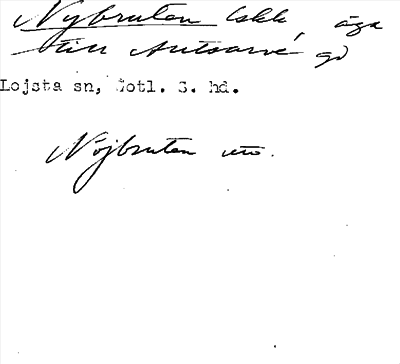 Nybruten lskh, äga
till Autsarve gd
Lojsta sn, Gotl. S. hd.
Nöjbruten uto.